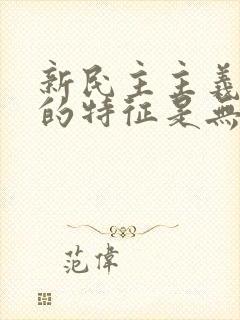 新民主主義
的特征是無
范偉